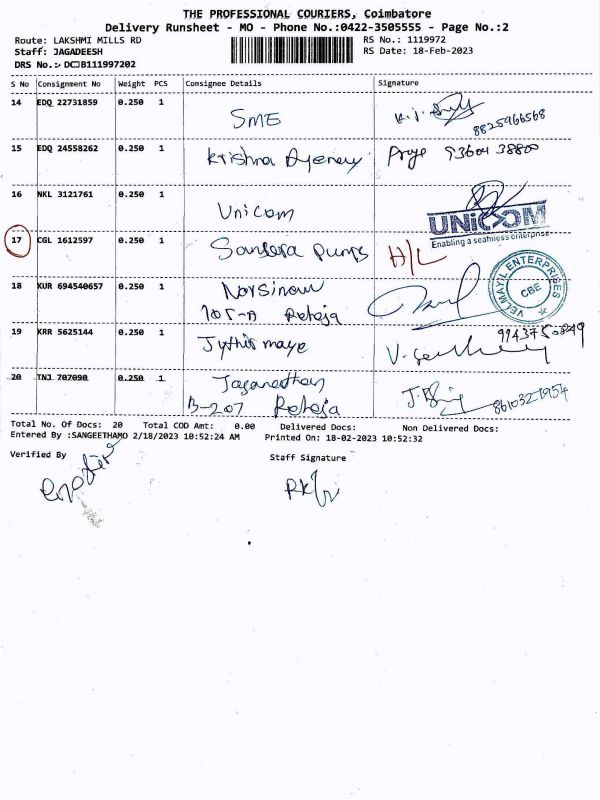 THE PROFESSIONAL COURIERS, Coimbatore
Delivery Runsheet - MO - Phone No.:0422-3505555 - Page No.:2
Route: LAKSHMI MILLS RD RS No.: 1119972
Staff: JAGADEESH RS Date: 18-Feb-2023
DRS No.:- DCJB111997202
S No Consignment No Weight PCS Consignee Details Signature
14 EDQ 22731859 0.250 1
SME
8825966568
15 EDQ 24558262 0.250 1
Krishna 93604 38800
16 NKL 3121761 0.250 1
Unicom
UNICOM
Enabling a seamless enterprise
17 CGL 1612597 0.250 1
Pumps H/L
VELMAYIL ENTERPRISES
CBE
18 KUR 694540657 0.250 1
705-A Raheja
19 KRR 5625144 0.250 1
20 TNJ 707090 0.250 1
Jaganathan
B-207 Raheja 8610327954
Total No. Of Docs: 20 Total COD Amt: 0.00 Delivered Docs: Non Delivered Docs:
Entered By :SANGEETHAMO 2/18/2023 10:52:24 AM Printed On: 18-02-2023 10:52:32
Verified By Staff Signature